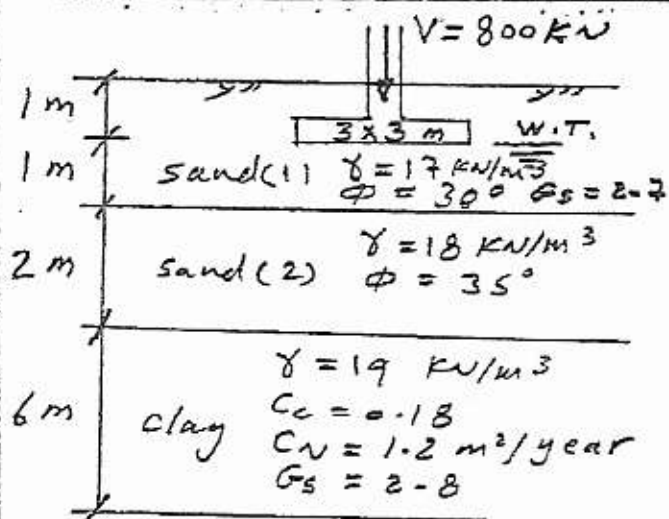 V = 800 KN
1 m
3 x 3 m
W.T.
1 m
sand(1) γ = 17 KN/m3
Φ = 30° Gs = 2-7
2 m
sand(2)
γ = 18 KN/m3
Φ = 35°
6 m
clay
γ = 19 KN/m3
Cc = 0.18
CV = 1.2 m2/year
Gs = 2-8